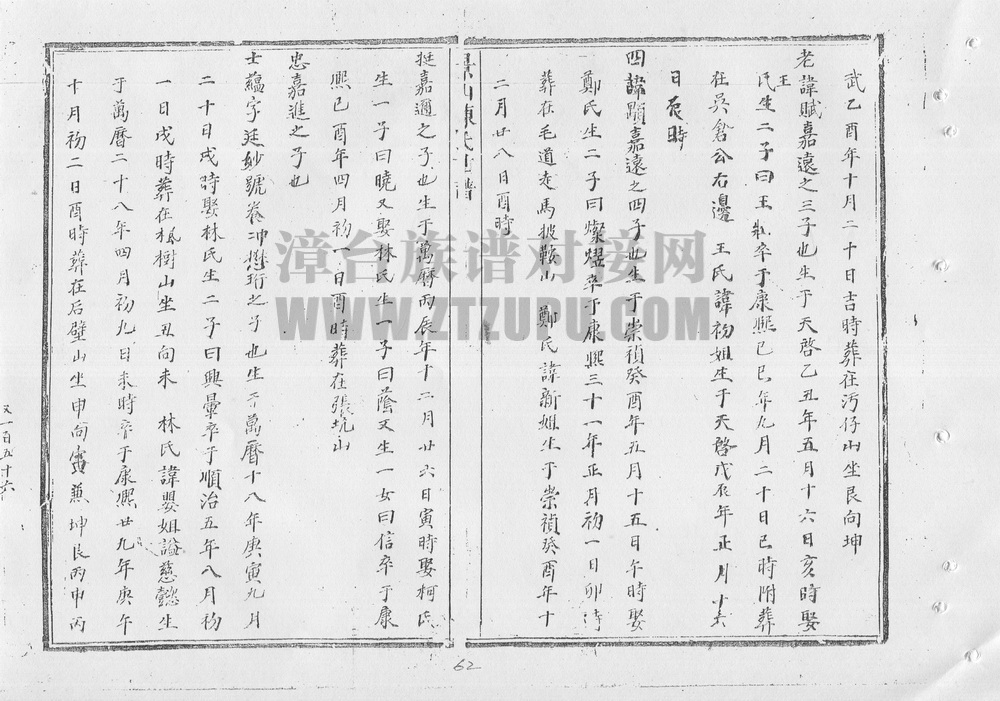 武乙酉年十月二十日吉時葬在汚仔山坐艮向坤
老諱賦嘉遠之三子也生于天啓乙丑年五月十六日亥時娶
王氏生二子曰王 卒于康熙己巳年九月二十日巳時附葬
在吳倉公右邊 王氏諱初姐生于天啓戊辰年正月十六
日辰時
四諱躡嘉遠之四子也生于崇禎癸酉年五月十五日午時娶
鄭氏生二子曰燦熠卒于康熙三十一年正月初一日卯時
葬在毛道走馬披鞍山 鄭氏諱新姐生于崇禎癸酉年十
二月廿八日酉時
陳氏世譜
挺嘉適之子也生于萬曆丙辰年十二月廿六日寅時娶柯氏
生一子曰曉又娶林氏生一子曰蔭又生一女曰信卒于康
熙己酉年四月初一日酉時葬在張坑山
忠嘉進之子也
士蘊字廷妙號養冲懋珩之子也生于萬曆十八年庚寅九月
二十日戌時娶林氏生二子曰興暈卒于順治五年八月初
一日戌時葬在楓樹山坐丑向未 林氏諱嬰姐謚慈懿生
于萬曆二十八年四月初九日未時卒于康熙廿九年庚午
十月初二日酉時葬在后壁山坐申向寅兼坤艮丙申丙
又一百五十六
62
漳台族谱对接网
WWW.ZTZUPU.COM